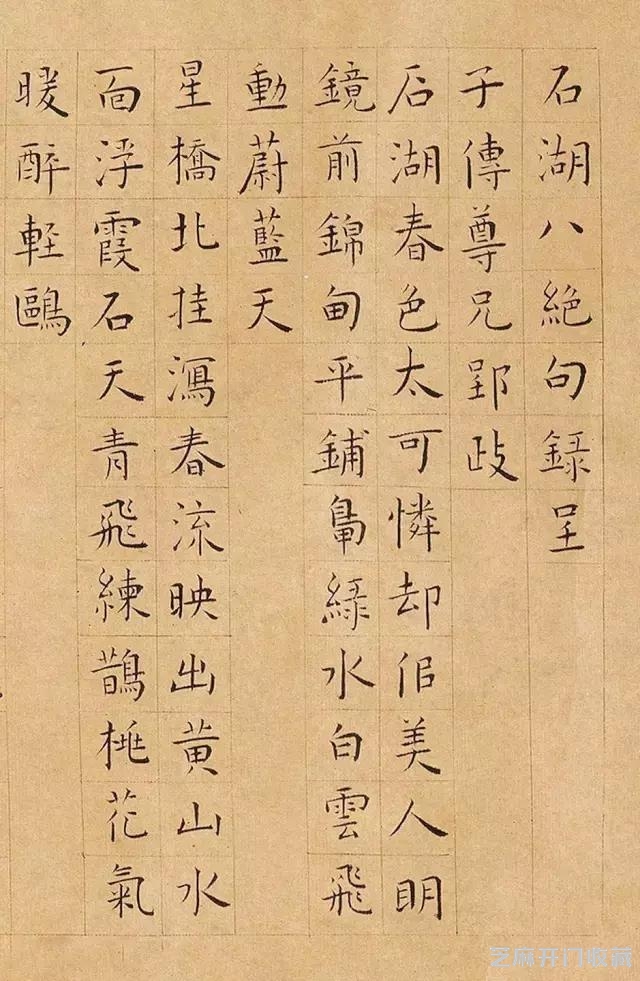 石湖八絶句録呈
子傳尊兄郢政
石湖春色太可憐却佀美人眀
鏡前錦甸平鋪鳧緑水白雲飛
動蔚藍天
星橋北挂瀉春流映出黄山水
面浮霞石天青飛練鵲桃花氣
暖醉輕鷗
芝麻开门